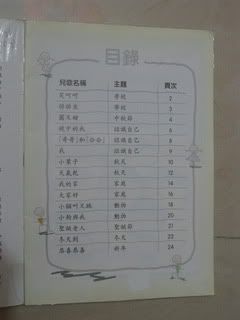 目錄
兒歌名稱 主題 頁次
笑呵呵 學校 2
學校 3
圓又甜 中秋節 4
鏡子的我 認識自己 6
「奇奇」和「公公」 認識自己 8
我 認識自己 9
小葉子 秋天 10
天氣乾 秋天 12
我的家 家庭 14
大家好 家庭 16
小貓叫又跳 動物 18
小狗與我 動物 20
聖誕老人 聖誕節 21
冬天到 冬天 22
恭喜恭喜 新年 24